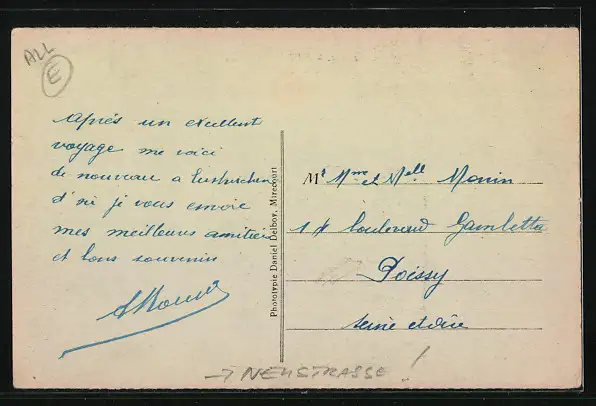 ALL
E
Après un excellent
voyage me voici
de nouveau a Euskirchen
d'ici je vous envoie
mes meilleures amitiés
et bons souvenirs
Phototypie Daniel Delboy, Mirecourt
Mr Mme et Mell Monin
boulevard Gambetta
Poissy
Seine et Oise
→ NEUSTRASSE !